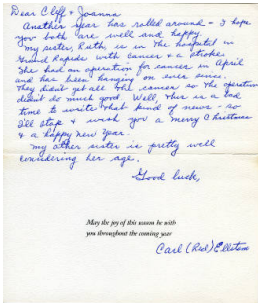 Dear Cliff & Joanna
Another year has rolled around - I hope
you both are well and happy.
My sister Ruth, is in the hospital in
Grand Rapids with cancer & a stroke.
She had an operation for cancer in April
and has been hanging on ever since.
They didn't get all the cancer so the operation
didn't do much good. Well this is a bad
time to write that kind of news - so
I'll stop & wish you a Merry Christmas
& a happy New Year.
My other sister is pretty well
considering her age.
Good luck,
May the joy of this season be with
you throughout the coming year
Carl (Red) Ellstrom